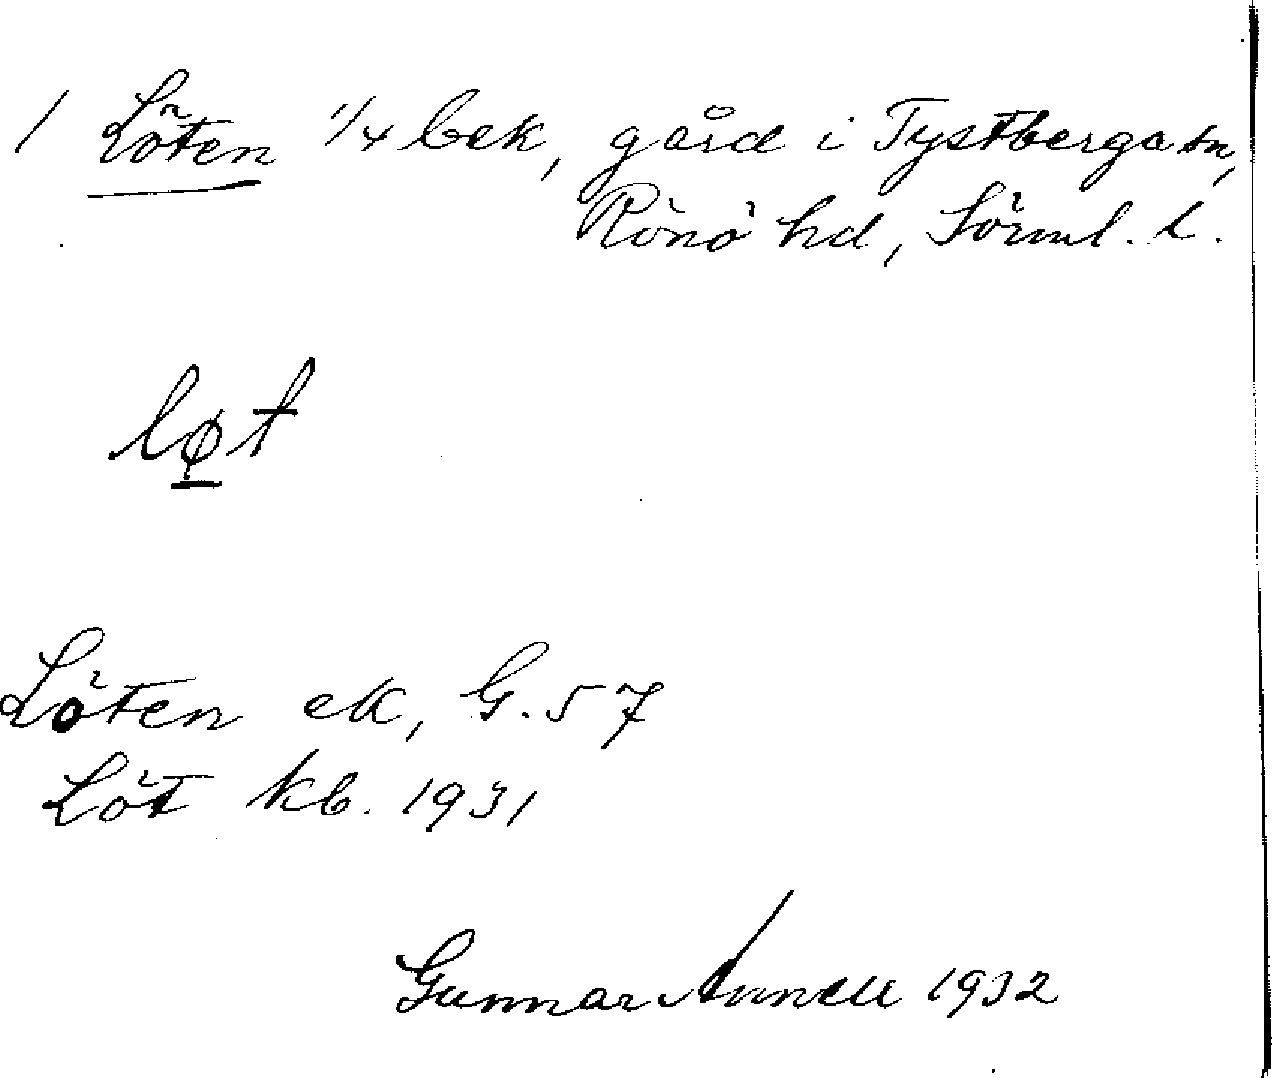 1 Löten 1/4 bek, gård i Tystberga sn,
Rönö hd, Sörml. l.
løt
Löten ek, G. 57
Löt kb. 1931
Gunnar Annell 1932